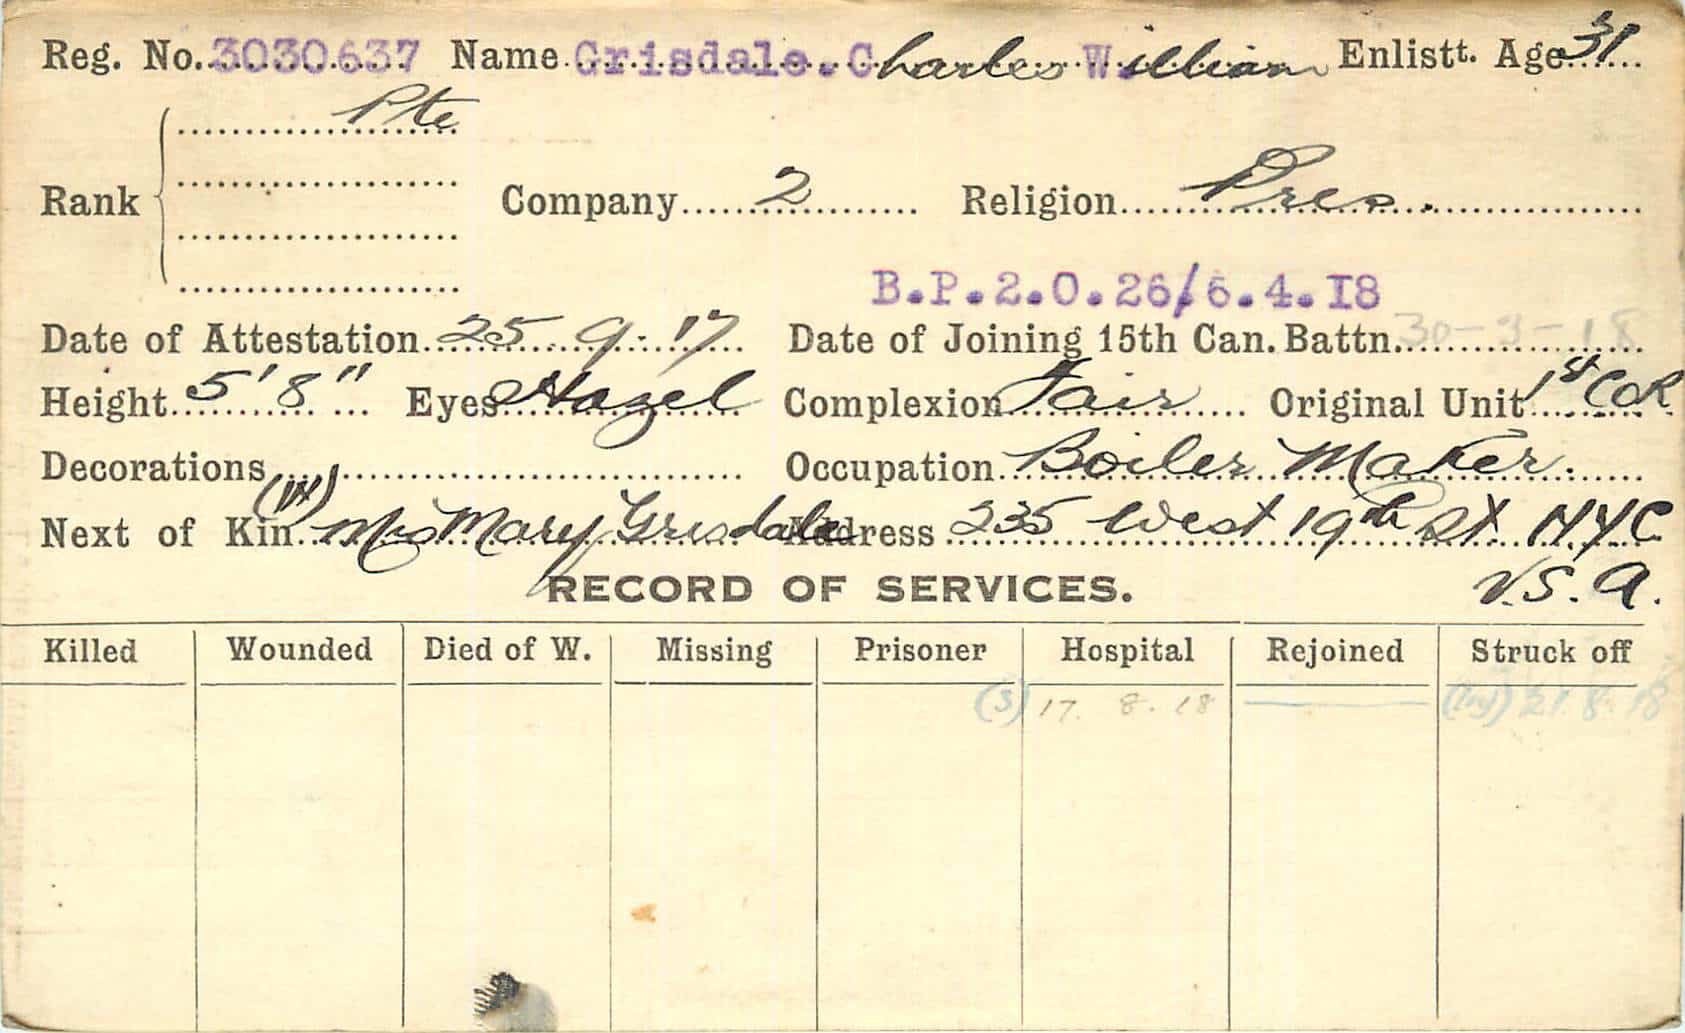 Reg. No. 3030637 Name Grisdale. Charles William Enlistt. Age 31
Pte
Rank Company 2 Religion Pres.
B.P.2.O.26/6.4.18
Date of Attestation 25 9.17 Date of Joining 15th Can. Battn. 30-3-18
Height 5'8" Eyes Hazel Complexion Fair Original Unit 1st COR
Decorations Occupation Boiler Maker.
Next of Kin Mrs Mary Grisdale Address 235 West 19th St. NYC
U.S.A.
RECORD OF SERVICES.
Killed Wounded Died of W. Missing Prisoner Hospital Rejoined Struck off
(S) 17. 8. 18 21 8 18